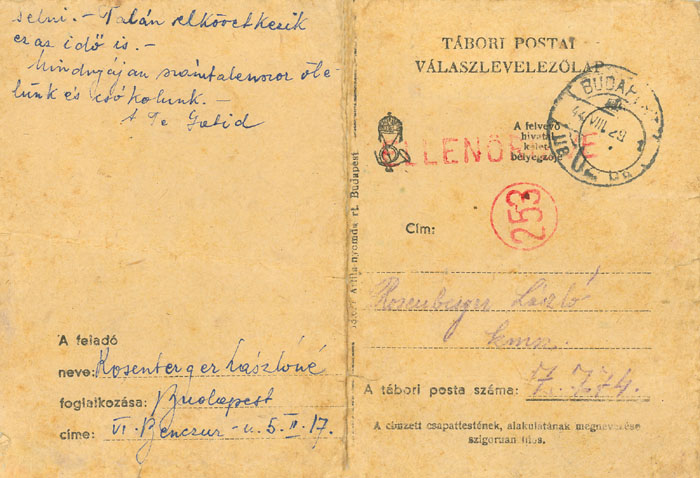 selni. - Talán elkövetkezik
ez az idő is. -
Mindnyájan számtalanszor öle-
lünk és csókolunk. -
A Te
A feladó
neve: Rosenberger Lászlóné
foglalkozása: Budapest
címe: VI. Benczur - u. 5. II. 17.
Attila-nyomda rt. Budapest
TÁBORI POSTAI
VÁLASZLEVELEZŐLAP
BUDAPEST
44 VIII. 28
A felvevő
hivatal
kelet-
bélyegzője
ELLENŐRIZVE
253
Cím:
Rosenberger László
kmsz.
A tábori posta száma: 7.774.
A címzett csapattestének, alakulatának megnevezése
szigorúan tilos.